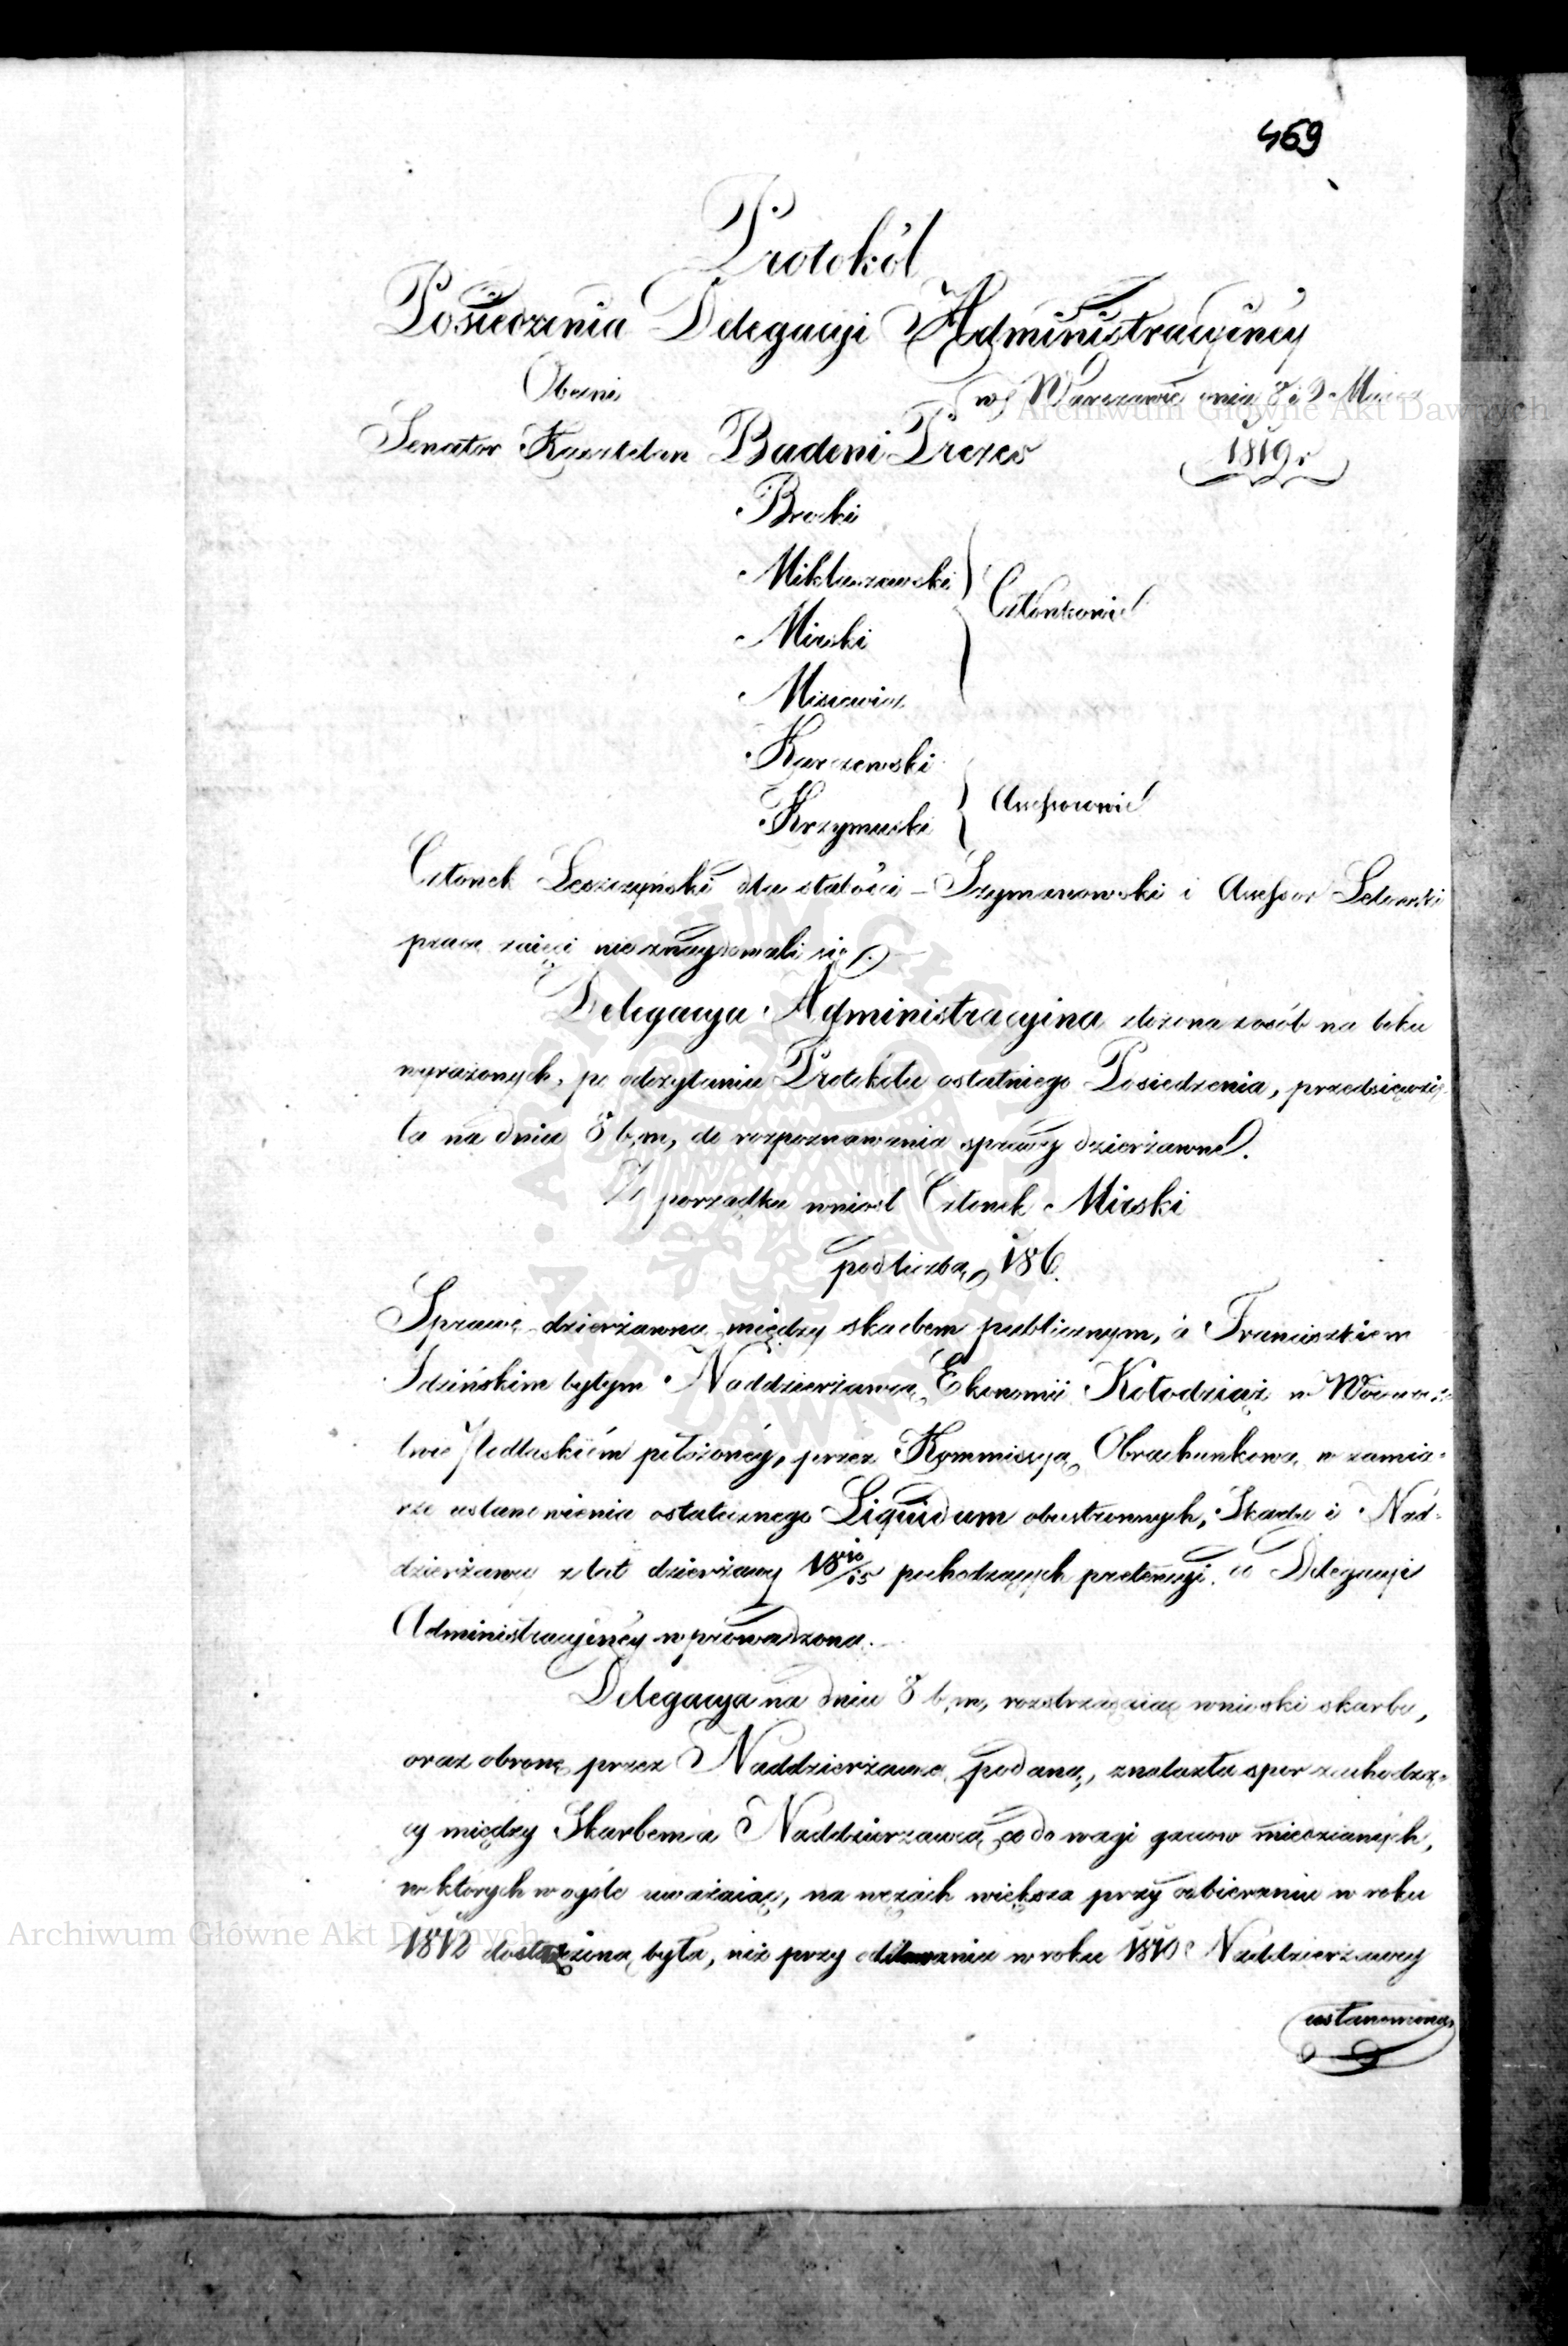 469
Protokół
Posiedzenia Delegacyi Administracyiney
Obecni
w Warszawie dnia 8 i 9 Marca
1819 r
Senator Kasztelan Badeni Prezes
Brocki
Miklaszewski
Mirski
Członkowie
Misiewicz
Karczewski
Krzymuski
Assessorowie
Członek Leszczyński dla słabości – Szymanowski i Assessor
pracą zaięci nieznaydowali się /.
Delegacya Administracyina złożona z osób na boku
wyrażonych, po odczytaniu Protokołu ostatniego Posiedzenia, przedsięwzię-
ła na dniu 8 b.m, do rozpoznawania sprawy dzierżawne.
Z porządku wniosł Członek Mirski
pod liczbą 186.
Sprawę dzierżawną między skarbem publicznym, a Franciszkiem
Idzińskim byłym Naddzierżawcą Ekonomii Kołodziąż w Woiewodz-
twie Podlaskiém położonéy, przez Kommissyą Obrachunkową w zamia-
rze ustanowienia ostatecznego Liquidum obustronnych, Skarbu i Nad-
dzierżawcy z lat dzierżawy 18 10/15 pochodzących pretensyi. do Delegacyi
Administracyinéy wprowadzoną.
Delegacya na dniu 8 b.m, roztrząsaiąc wnioski skarbu,
oraz obronę przez Naddzierżawcę podaną, znalazła spor zachodzą-
cy między Skarbem a Naddzierzawcą co do wagi garcow miedzianych,
w których w ogóle uważaiąc, na wężach większa przy odbieraniu w roku
1812 dostrzeżona była, niż przy oddawaniu w roku 1810 Naddzierzawcy
ustanowiona
Archiwum Główne Akt Dawnych
Archiwum Główne Akt Dawnych
ARCHIWUM GŁÓWNE AKT DAWNYCH